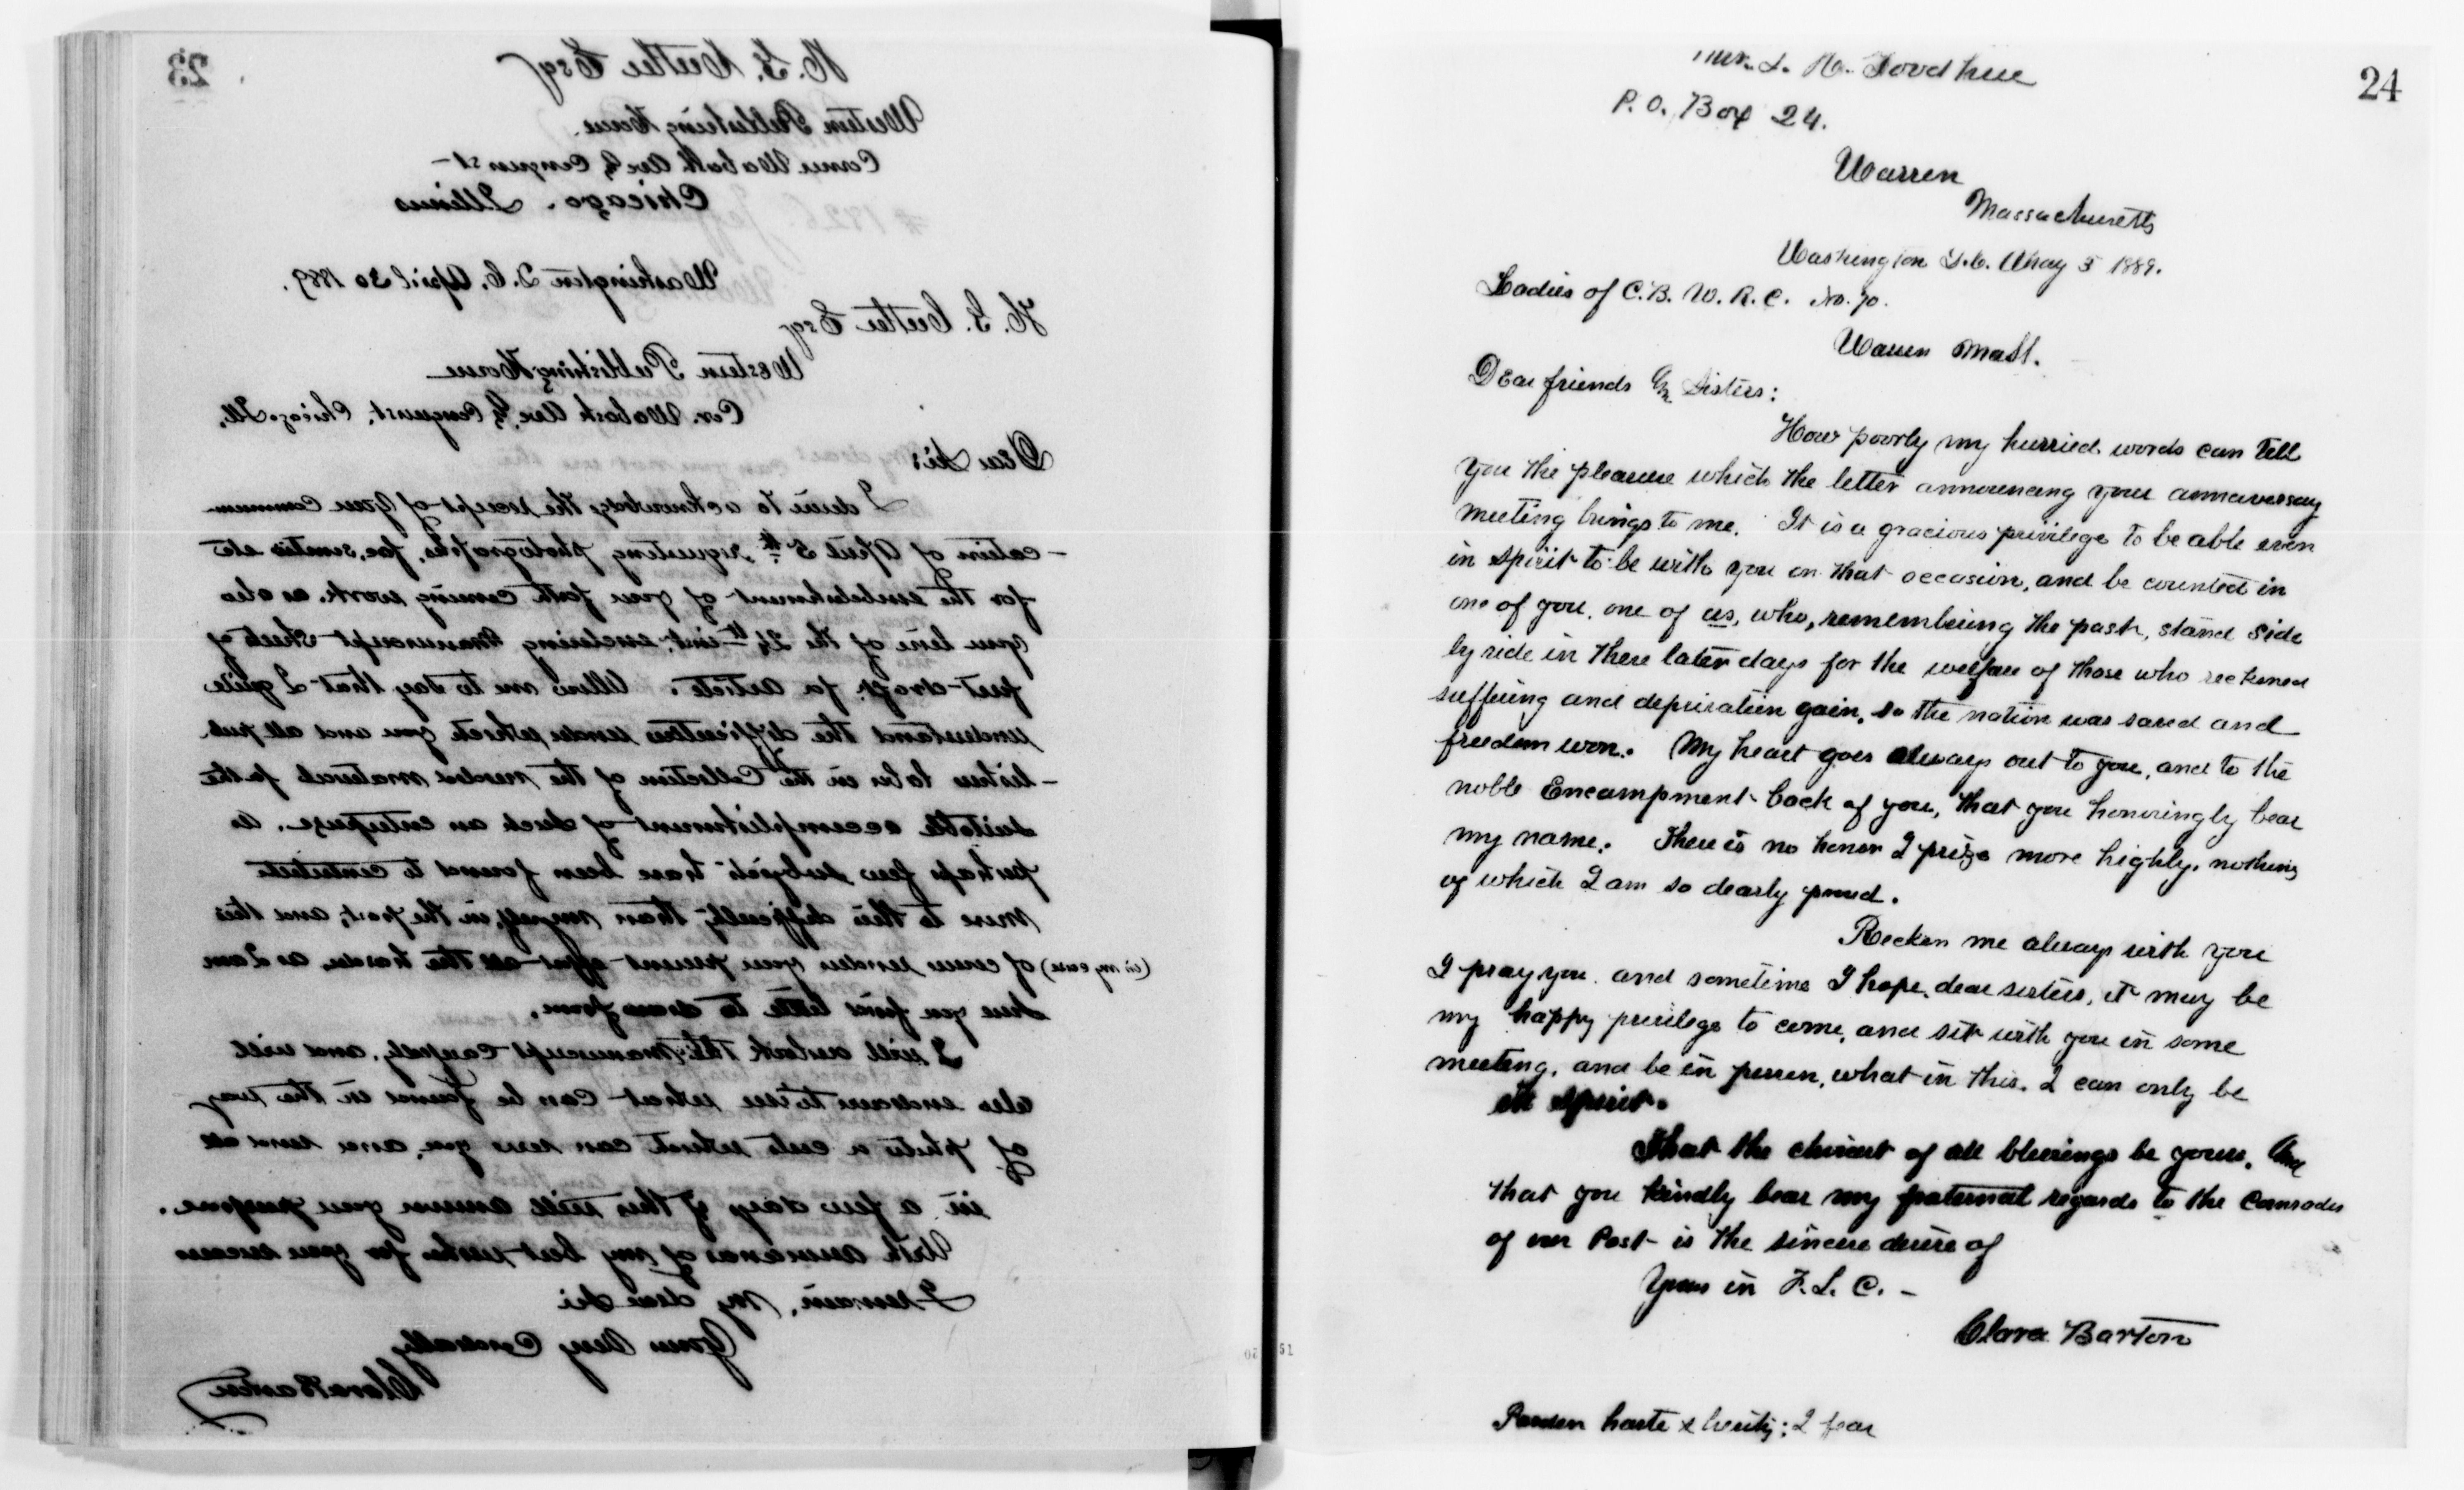 23
H. G. Cutler Esqr
Western Publishing House.
Corner Wabash Ave & Congress st-
Chicago. Illinois
Washington D.C. April 30 1889.
H. G. Cutler Esqr
Western Publishing House
Cor. Wabash Ave & Congress st. Chicago Ill.
Dear Sir
I desire to acknowledge the receipt of your commun
-cation of April 5th requesting photographs, fac. similes etc
for the embelishment of your forth coming work. as also
your line of the 24th inst. enclosing manuscript sheets of
for article. Allow me to say that I quite
understand the difficulties under which you and all pub
-lishers labor in the collection of the needed material for the
suitable accomplishment of such an enterprise. as
perhaps few subjects have been found to contribute
more to this difficulty than myself, in the past, and this
(in my case) of course renders your present effort all the harder, as I am
sure you find little to draw from.
I will overlook the manuscript carefully, and will
also endeavor to see what can be found in the way
of photo or cuts which can serve you, and send all
in a few days if this will answer your purpose.
With assurances of my best wishes for your success
I remain, My dear Sir
Yours Very Cordially
Clara Barton
24
Mrs. L. M. Goodhue
P. O. Box 24.
Warren
Massachusetts
Washington D.C. May 5 1889.
Ladies of C. B. W. R. C. No. 70.
Warren Mass.
Dear friends & Sisters:
How poorly my hurried words can tell
you the pleasure which the letter announcing your anniversary
meeting brings to me. It is a gracious privilege to be able even
in spirit to be with you on that occasion, and be counted in
one of you, one of us, who, remembering the past, stand side
by side in these later days for the welfare of those who reckoned
suffering and deprivation gain, so the nation was saved and
freedom won. My heart goes always out to you, and to the
noble Encampment back of you, that you honoringly bear
my name. There is no honor I prize more highly, nothing
of which I am so dearly proud.
Reckon me always with you
I pray you. and sometime I hope, dear sisters, it may be
my happy privilege to come, and sit with you in some
meeting, and be in person, what in this, I can only be
in spirit.
That the choicest of all blessings be yours, And
that you kindly bear my fraternal regards to the Comrades
of our Post is the sincere desire of
Yours in F. L. C. -
Clara Barton
Pardon haste & brevity: I fear